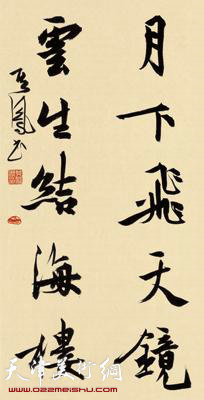 月下飛天鏡
雲生結海樓
天津美術網
www.022meishu.com